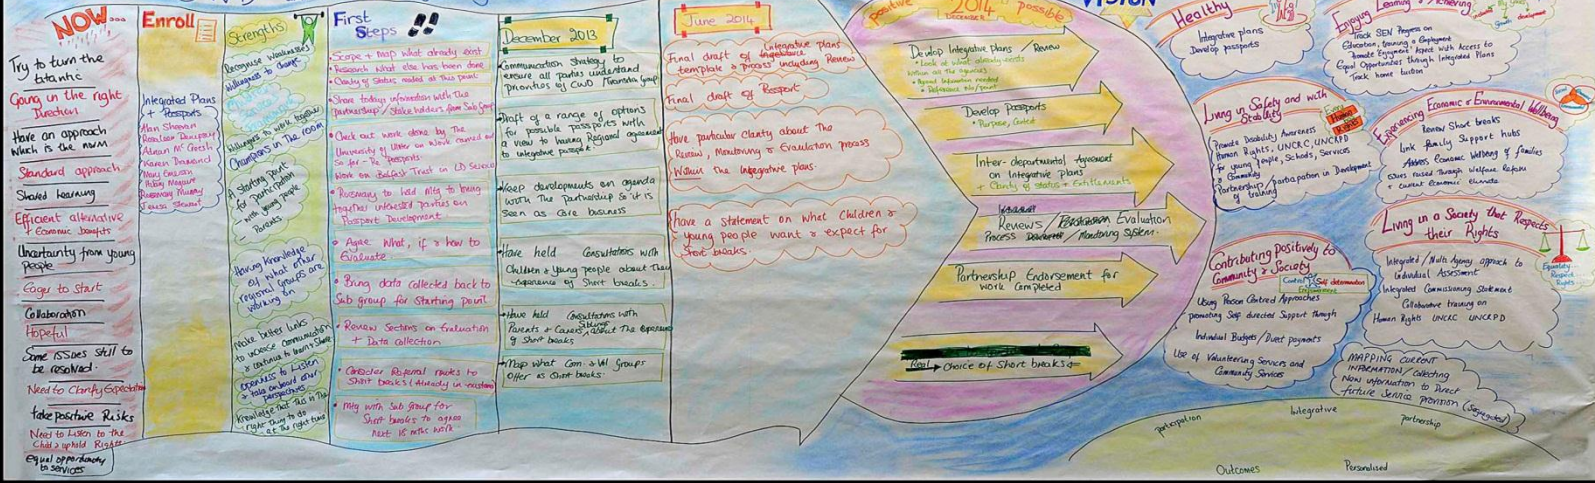 NOW...
Try to turn the
titanic
Going in the right
Direction
Have an approach
which is the norm
Standard approach
Shared Learning
Efficient alternative
+ Economic benefits
Uncertainty from young
People
Eager to Start
Collaboration
Hopeful
Some issues still to
be resolved.
Need to Clarify Expectation
take positive Risks
Need to Listen to the
Child & uphold Rights
equal opportunity
to services
Enroll
Integrated Plans
+ Passports
Strengths
Recognise Weaknesses
Willingness to change
Willingness to work together
Champions in the room
A Starting point
for participation
- with young people
- Parents
Having Knowledge
of what other
regional groups are
working on
Make better links
to increase communication
& continue to learn & share
Openness to Listen
& take on board other
perspectives
Knowledge that this is the
right thing to do
- at the right time
First
Steps
• Scope + Map what already exist
• Research What else has been done
• Clarity of Status needed at this point
• Share todays information with this
partnership / Stakeholders from Sub Group
• Check out work done by the
University of Ulster on work carried out
So far - Re Passports
Work on Belfast Trust in LD Service
• Rosemary to hold Mtg to bring
together interested parties on
Passport Development
• Agree What, if & how to
Evaluate
• Bring data collected back to
Sub group for Starting point
• Review Sections on Evaluation
+ Data collection
• Consider Referral routes to
Short breaks (Already in existence)
• Mtg with Sub Group for
Short breaks to agree
next 18 mths work
December 2013
• Communication strategy to
ensure all parties understand
priorities of CWD / Transition group
• Draft of a range of options
for possible passports with
a view to having Regional agreement
to integrative passport.
• Keep developments on agenda
with the partnership so it is
seen as core business
• Have held Consultations with
Children & Young people about their
experience of Short breaks.
• Have held Consultations with
Parents + Carers, Siblings about the experience
of Short breaks
• Map what Com + Vol Groups
offer as Short breaks.
June 2014
Final draft of Integrative plans
template & process including Review
Final draft of Passport
Have particular Clarity about the
Review, Monitoring & Evaluation process
Within the integrative plans.
Have a statement on what Children &
young people want & expect for
Short breaks.
positive 2014 possible
DECEMBER
Develop Integrative plans / Review
• Look at what already exists
within all the agencies
• Agreed information needed
• Reference no/point
Develop Passports
• Purpose, Content
Inter-departmental Agreement
on Integrative Plans
+ Clarity of Status + Entitlements
Reviews / Evaluation
Process / Monitoring System.
Partnership Endorsement for
work Completed
Real → Choice of Short breaks
VISION
Healthy
Integrative plans
Develop passports
Enjoying Learning & Achieving
Track SEN Progress on
Education, training & Employment
Promote Enjoyment Aspect with Access to
Equal Opportunities through Integrated Plans
Track home tuition
Growth development
Living in Safety and with
Stability
Human
Rights
Promote Disability Awareness
Human Rights, UNCRC, UNCRPD
for young People, Schools, Services
& Community
Partnership / participation in Development
of training
Experiencing Economic & Environmental Wellbeing
Renew Short breaks
Link family Support hubs
Address Economic Wellbeing of families
issues raised through Welfare reform
+ current economic climate
Contributing Positively to
Community & Society
Control Self determination
Empowerment
Using Person Centred Approaches
promoting Self directed Support through
Individual Budgets / Direct payments
Use of Volunteering Services and
Community Services
Living in a Society that Respects
their Rights
Integrated / Multi Agency approach to
Individual Assessment
Integrated Commissioning Statement
Collaborative training on
Human Rights UNCRC UNCRPD
Equality
Respect
Rights
MAPPING CURRENT
INFORMATION / Collecting
New information to Direct
future Service Provision
participation
Integrative
partnership
Outcomes
Personalised